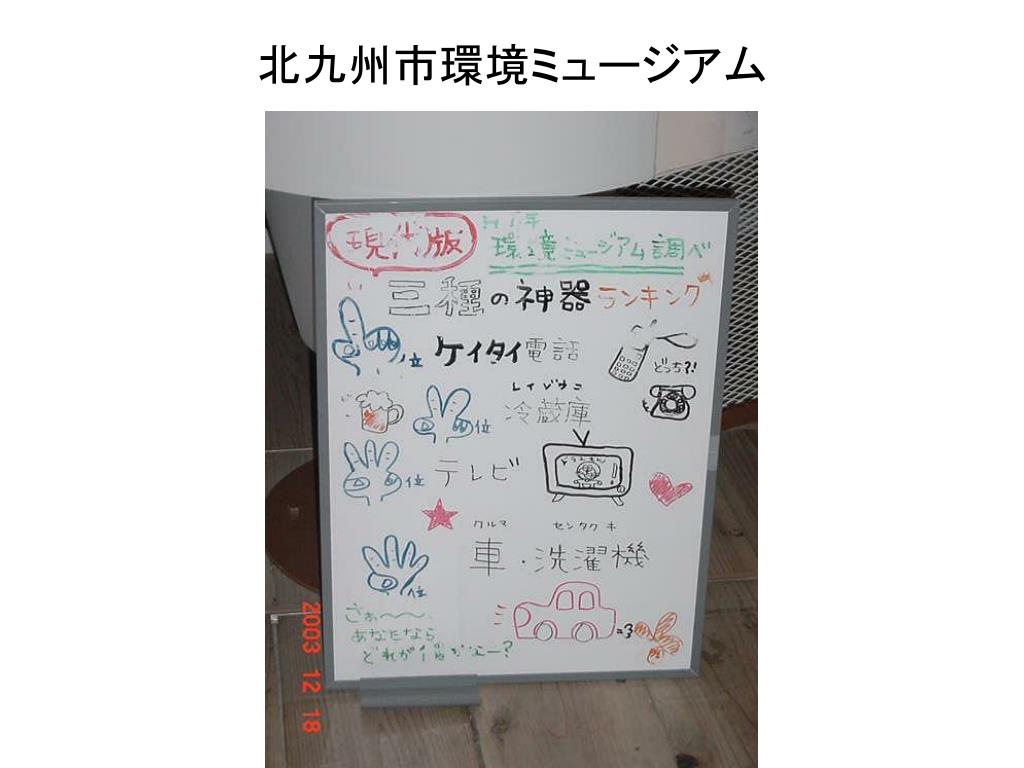 北九州市環境ミュージアム
現代版
環境ミュージアム調べ
三種の神器ランキング
位 ケイタイ電話
どっち?!
レイゾウコ
位 冷蔵庫
位 テレビ
クルマ センタクキ
車・洗濯機
位
さぁ〜〜
あなたなら
どれが
2003 12 18